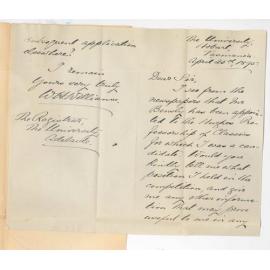 The University,
Hobart,
Tasmania,
April 20th 1895.
Dear Sir,
I see from the
newspapers that Mr
Bensly has been appoin-
ted to the Hughes Pro-
fessorship of Classics
for which I was a can-
didate. Would you
kindly tell me what
position I held in the
competition, and give
me any other informa-
tion that may prove
useful to me in any
subsequent application
elsewhere?
I remain
Yours very truly
W H Williams.
The Registrar,
The University
Adelaide.